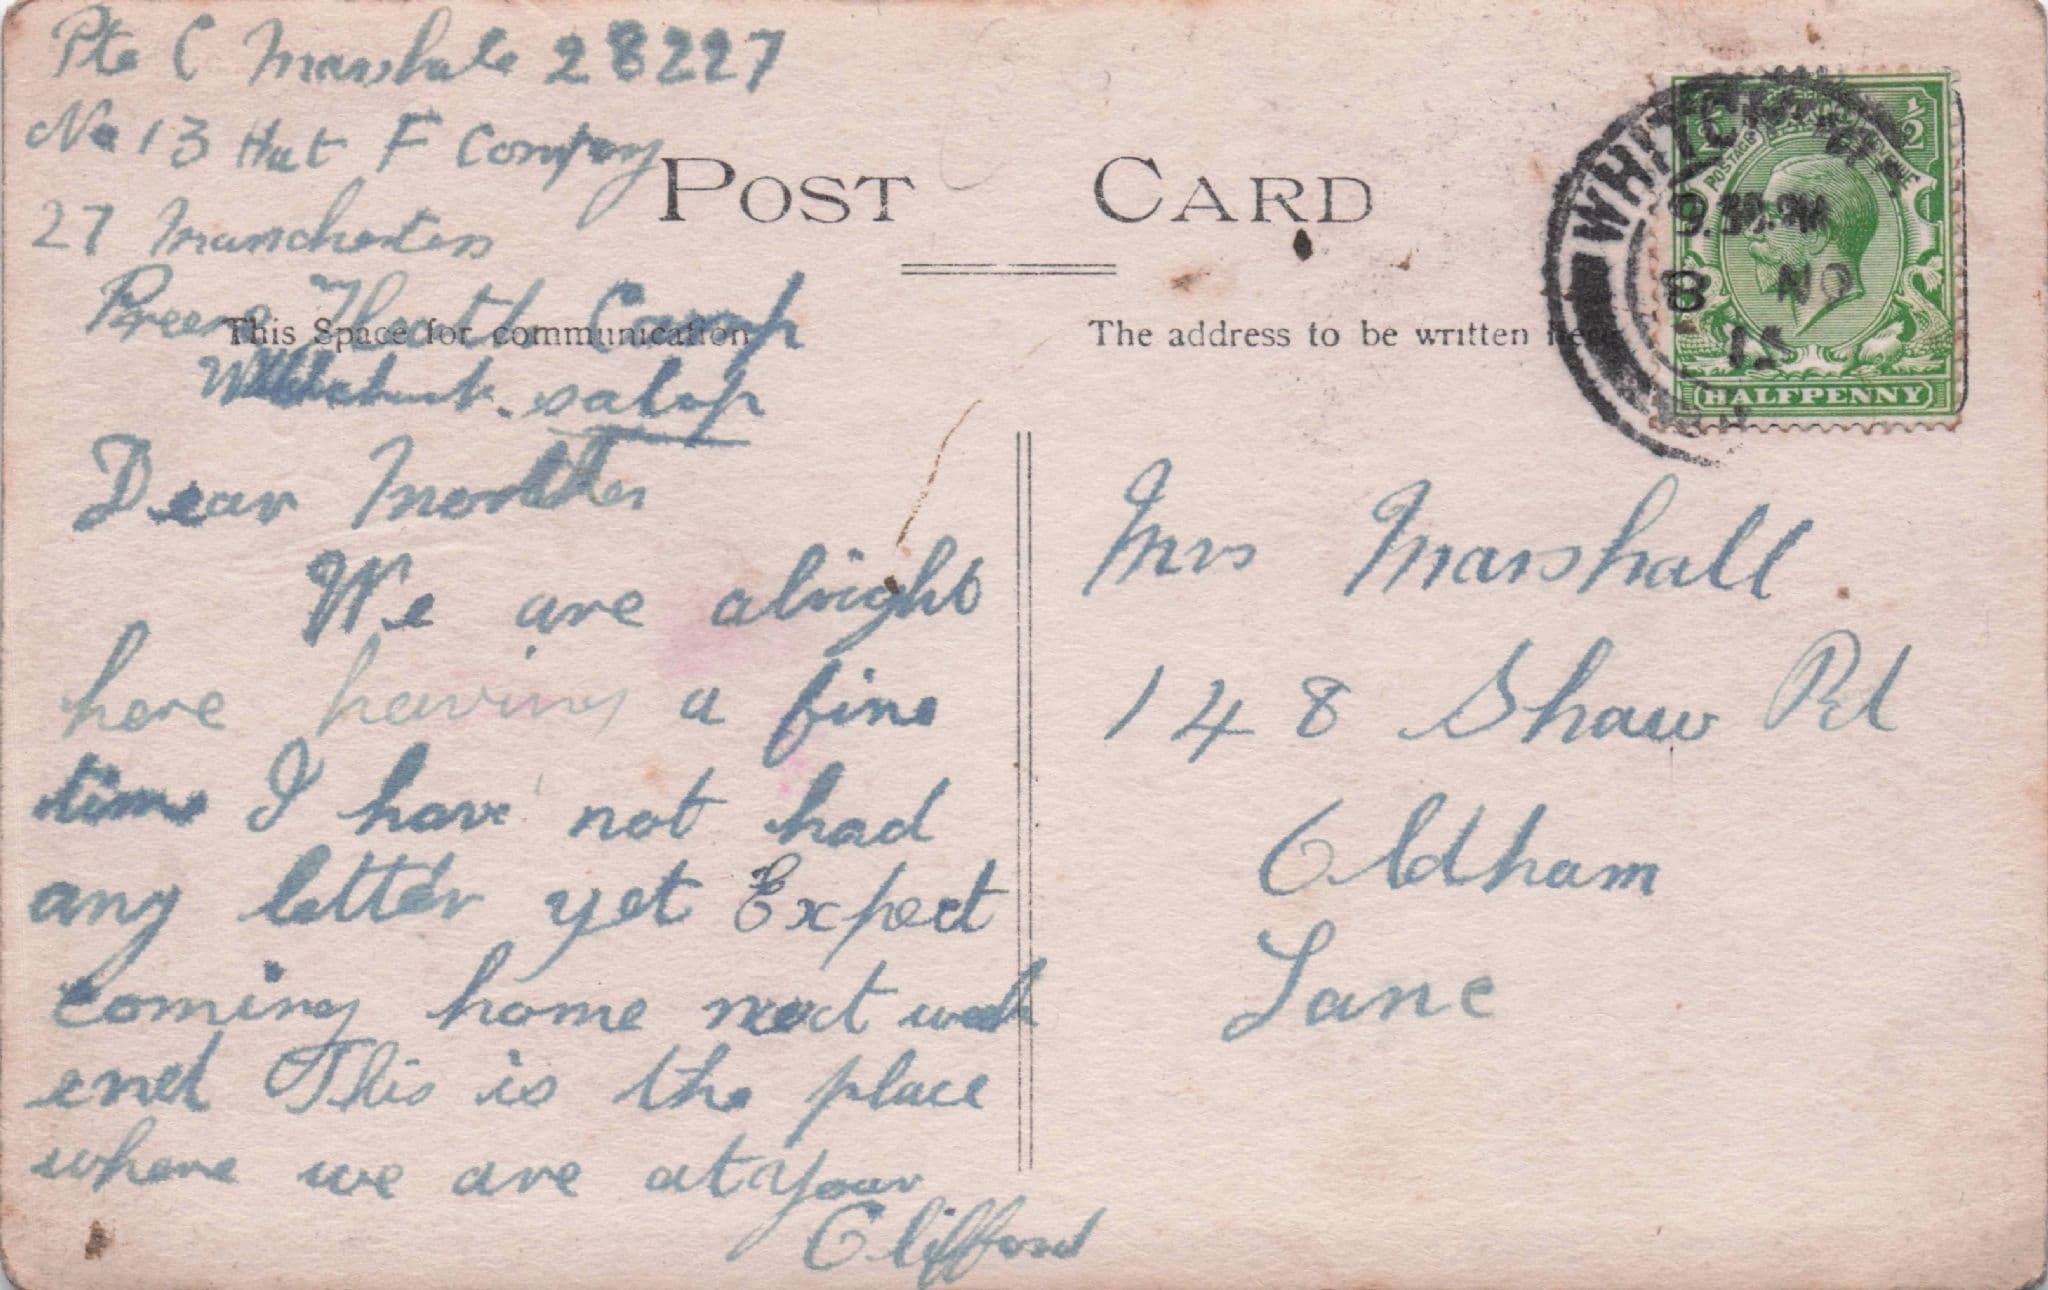 Pte C Marshale 28227
No 13 Hut F Company
27 Manchesters
Prees Heath Camp
Salop
POST CARD
This Space for communication
The address to be written here
Dear Mother
We are alright
here having a fine
time I have not had
any letter yet Expect
coming home next week
end This is the place
where we are at your
Clifford
Mrs Marshall
148 Shaw Rd
Oldham
Lane
WHITCHURCH
9.30 PM
8 NO
15
POSTAGE REVENUE
½ ½
HALFPENNY